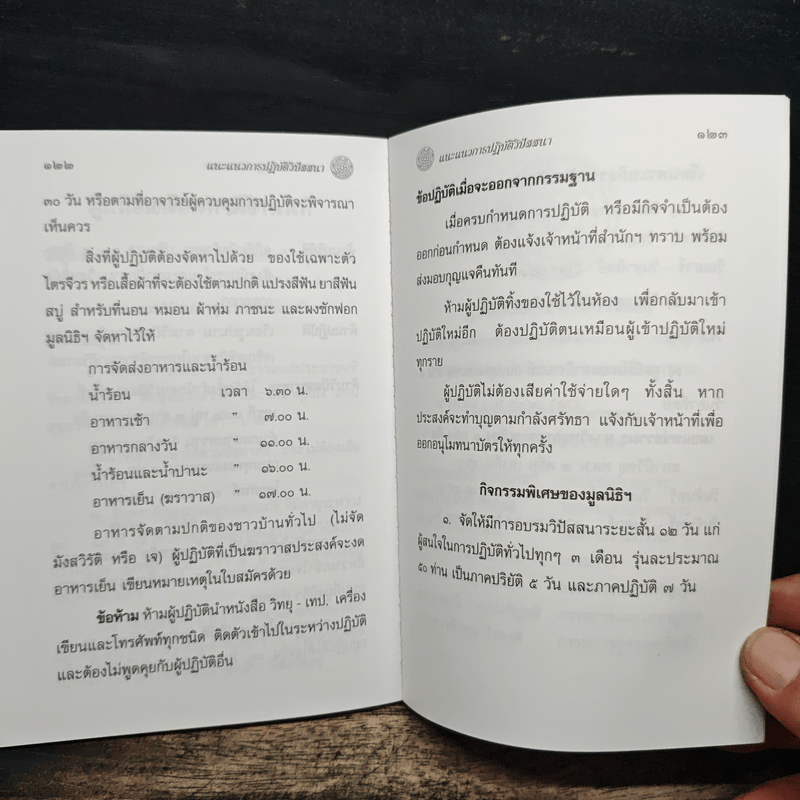 ๑๒๒ แนะแนวการปฏิบัติวิปัสสนา
๓๐ วัน หรือตามที่อาจารย์ผู้ควบคุมการปฏิบัติจะพิจารณา
เห็นควร
สิ่งที่ผู้ปฏิบัติต้องจัดหาไปด้วย ของใช้เฉพาะตัว
ไตรจีวร หรือเสื้อผ้าที่จะต้องใช้ตามปกติ แปรงสีฟัน ยาสีฟัน
สบู่ สำหรับที่นอน หมอน ผ้าห่ม ภาชนะ และผงซักฟอก
มูลนิธิฯ จัดหาไว้ให้
การจัดส่งอาหารและน้ำร้อน
น้ำร้อน เวลา ๖.๓๐ น.
อาหารเช้า " ๗.๐๐ น.
อาหารกลางวัน " ๑๑.๐๐ น.
น้ำร้อนและน้ำปานะ " ๑๖.๐๐ น.
อาหารเย็น (ฆราวาส) " ๑๗.๐๐ น.
อาหารจัดตามปกติของชาวบ้านทั่วไป (ไม่จัด
มังสวิรัติ หรือ เจ) ผู้ปฏิบัติที่เป็นฆราวาสประสงค์จะงด
อาหารเย็น เขียนหมายเหตุในใบสมัครด้วย
ข้อห้าม ห้ามผู้ปฏิบัตินำหนังสือ วิทยุ - เทป, เครื่อง
เขียนและโทรศัพท์ทุกชนิด ติดตัวเข้าไปในระหว่างปฏิบัติ
และต้องไม่พูดคุยกับผู้ปฏิบัติอื่น
แนะแนวการปฏิบัติวิปัสสนา ๑๒๓
ข้อปฏิบัติเมื่อจะออกจากกรรมฐาน
เมื่อครบกำหนดการปฏิบัติ หรือมีกิจจำเป็นต้อง
ออกก่อนกำหนด ต้องแจ้งเจ้าหน้าที่สำนักฯ ทราบ พร้อม
ส่งมอบกุญแจคืนทันที
ห้ามผู้ปฏิบัติทิ้งของใช้ไว้ในห้อง เพื่อกลับมาเข้า
ปฏิบัติใหม่อีก ต้องปฏิบัติตนเหมือนผู้เข้าปฏิบัติใหม่
ทุกราย
ผู้ปฏิบัติไม่ต้องเสียค่าใช้จ่ายใดๆ ทั้งสิ้น หาก
ประสงค์จะทำบุญตามกำลังศรัทธา แจ้งกับเจ้าหน้าที่เพื่อ
ออกอนุโมทนาบัตรให้ทุกครั้ง
กิจกรรมพิเศษของมูลนิธิฯ
๑. จัดให้มีการอบรมวิปัสสนาระยะสั้น ๑๒ วัน แก่
ผู้สนใจในการปฏิบัติทั่วไปทุกๆ ๓ เดือน รุ่นละประมาณ
๕๐ ท่าน เป็นภาคปริยัติ ๕ วัน และภาคปฏิบัติ ๗ วัน